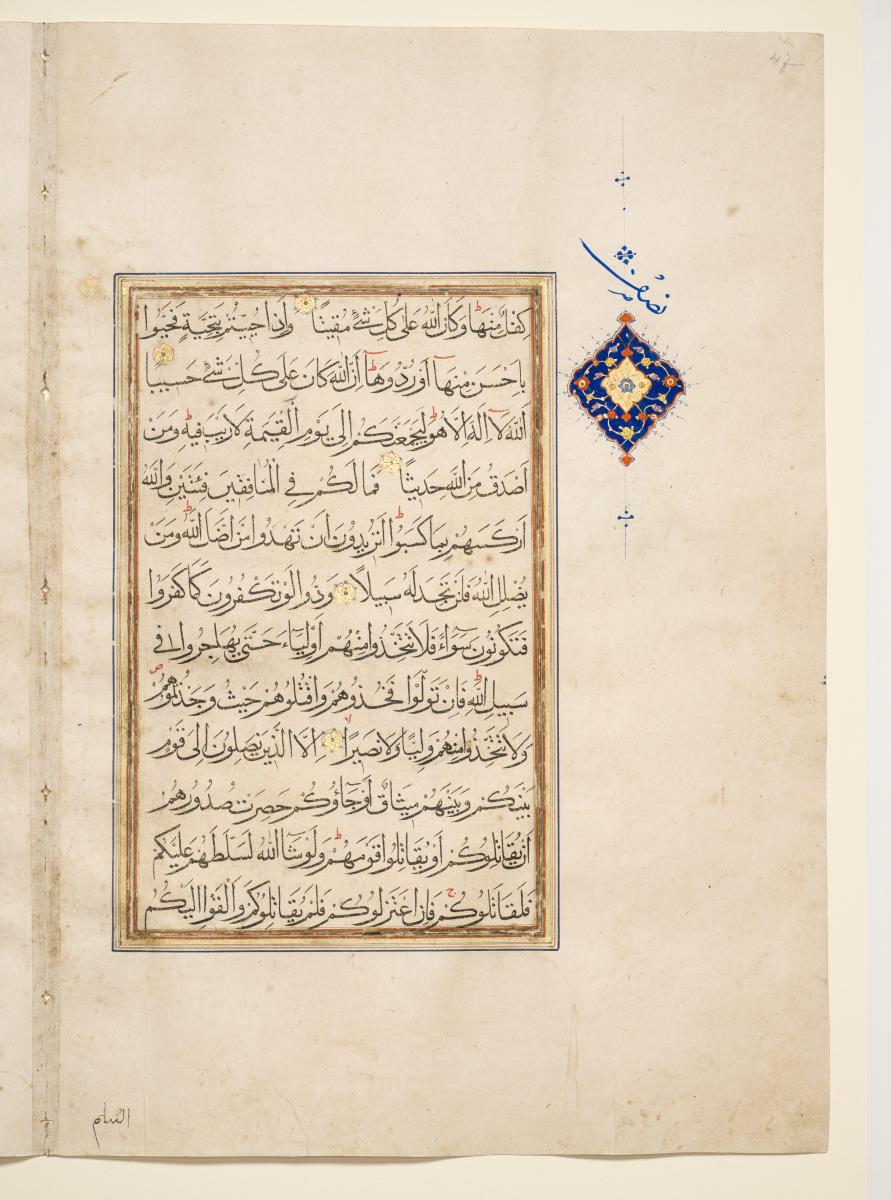 كِفْلٌ مِنْهَا وَكَانَ اللّٰهُ عَلٰى كُلِّ شَيْءٍ مُقِيتًا وَاِذَا حُيِّيتُمْ بِتَحِيَّةٍ فَحَيُّوا
بِاَحْسَنَ مِنْهَا اَوْ رُدُّوهَا اِنَّ اللّٰهَ كَانَ عَلٰى كُلِّ شَيْءٍ حَسِيبًا
اَللّٰهُ لَا اِلٰهَ اِلَّا هُوَ لَيَجْمَعَنَّكُمْ اِلٰى يَوْمِ الْقِيٰمَةِ لَا رَيْبَ فِيهِ وَمَنْ
اَصْدَقُ مِنَ اللّٰهِ حَدِيثًا فَمَا لَكُمْ فِي الْمُنَافِقِينَ فِئَتَيْنِ وَاللّٰهُ
اَرْكَسَهُمْ بِمَا كَسَبُوا اَتُرِيدُونَ اَنْ تَهْدُوا مَنْ اَضَلَّ اللّٰهُ وَمَنْ
يُضْلِلِ اللّٰهُ فَلَنْ تَجِدَ لَهُ سَبِيلًا وَدُّوا لَوْ تَكْفُرُونَ كَمَا كَفَرُوا
فَتَكُونُونَ سَوَاءً فَلَا تَتَّخِذُوا مِنْهُمْ اَوْلِيَاءَ حَتّٰى يُهَاجِرُوا فِي
سَبِيلِ اللّٰهِ فَاِنْ تَوَلَّوْا فَخُذُوهُمْ وَاقْتُلُوهُمْ حَيْثُ وَجَدْتُمُوهُمْ
وَلَا تَتَّخِذُوا مِنْهُمْ وَلِيًّا وَلَا نَصِيرًا اِلَّا الَّذِينَ يَصِلُونَ اِلٰى قَوْمٍ
بَيْنَكُمْ وَبَيْنَهُمْ مِيثَاقٌ اَوْ جَاؤُكُمْ حَصِرَتْ صُدُورُهُمْ
اَنْ يُقَاتِلُوكُمْ اَوْ يُقَاتِلُوا قَوْمَهُمْ وَلَوْ شَاءَ اللّٰهُ لَسَلَّطَهُمْ عَلَيْكُمْ
فَلَقَاتَلُوكُمْ فَاِنِ اعْتَزَلُوكُمْ فَلَمْ يُقَاتِلُوكُمْ وَاَلْقَوْا اِلَيْكُمُ
نصف
السلم